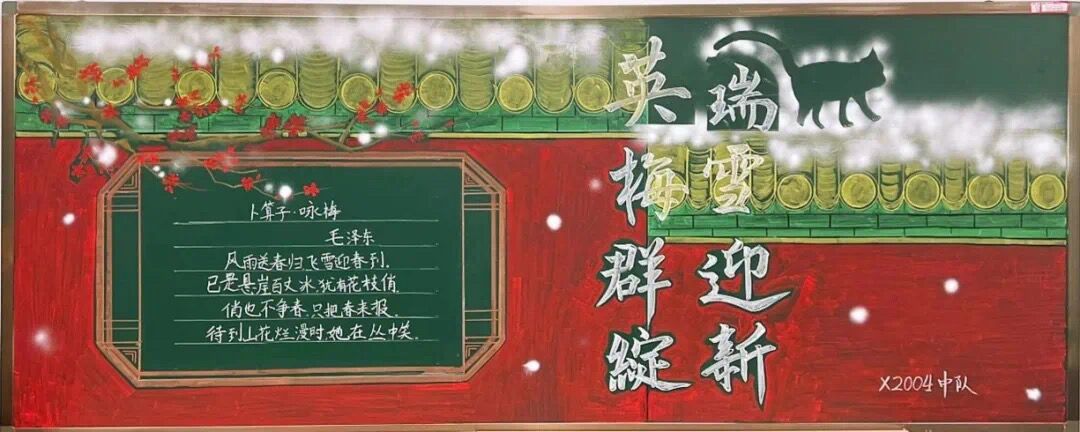 卜算子·咏梅
毛泽东
风雨送春归飞雪迎春到.
已是悬崖百丈冰,犹有花枝俏
俏也不争春.只把春来报.
待到山花烂漫时,她在丛中笑.
瑞雪迎新
英梅群绽
X2004中队